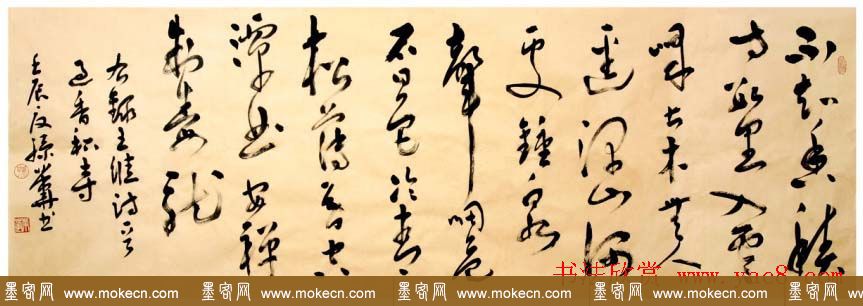 不知香積
寺數里入雲
峰古木無人
徑深山何
處鐘泉
聲咽危
石日色冷青
松薄暮空
潭曲安禪
制毒龍
右錄王維詩一首
過香積寺
壬辰夏孫華书
书法欣赏 www.yac8.com
墨客网 www.mokecn.com 墨客网 www.mokecn.com 墨客网 www.mokecn.com 墨客网 www.mokecn.com